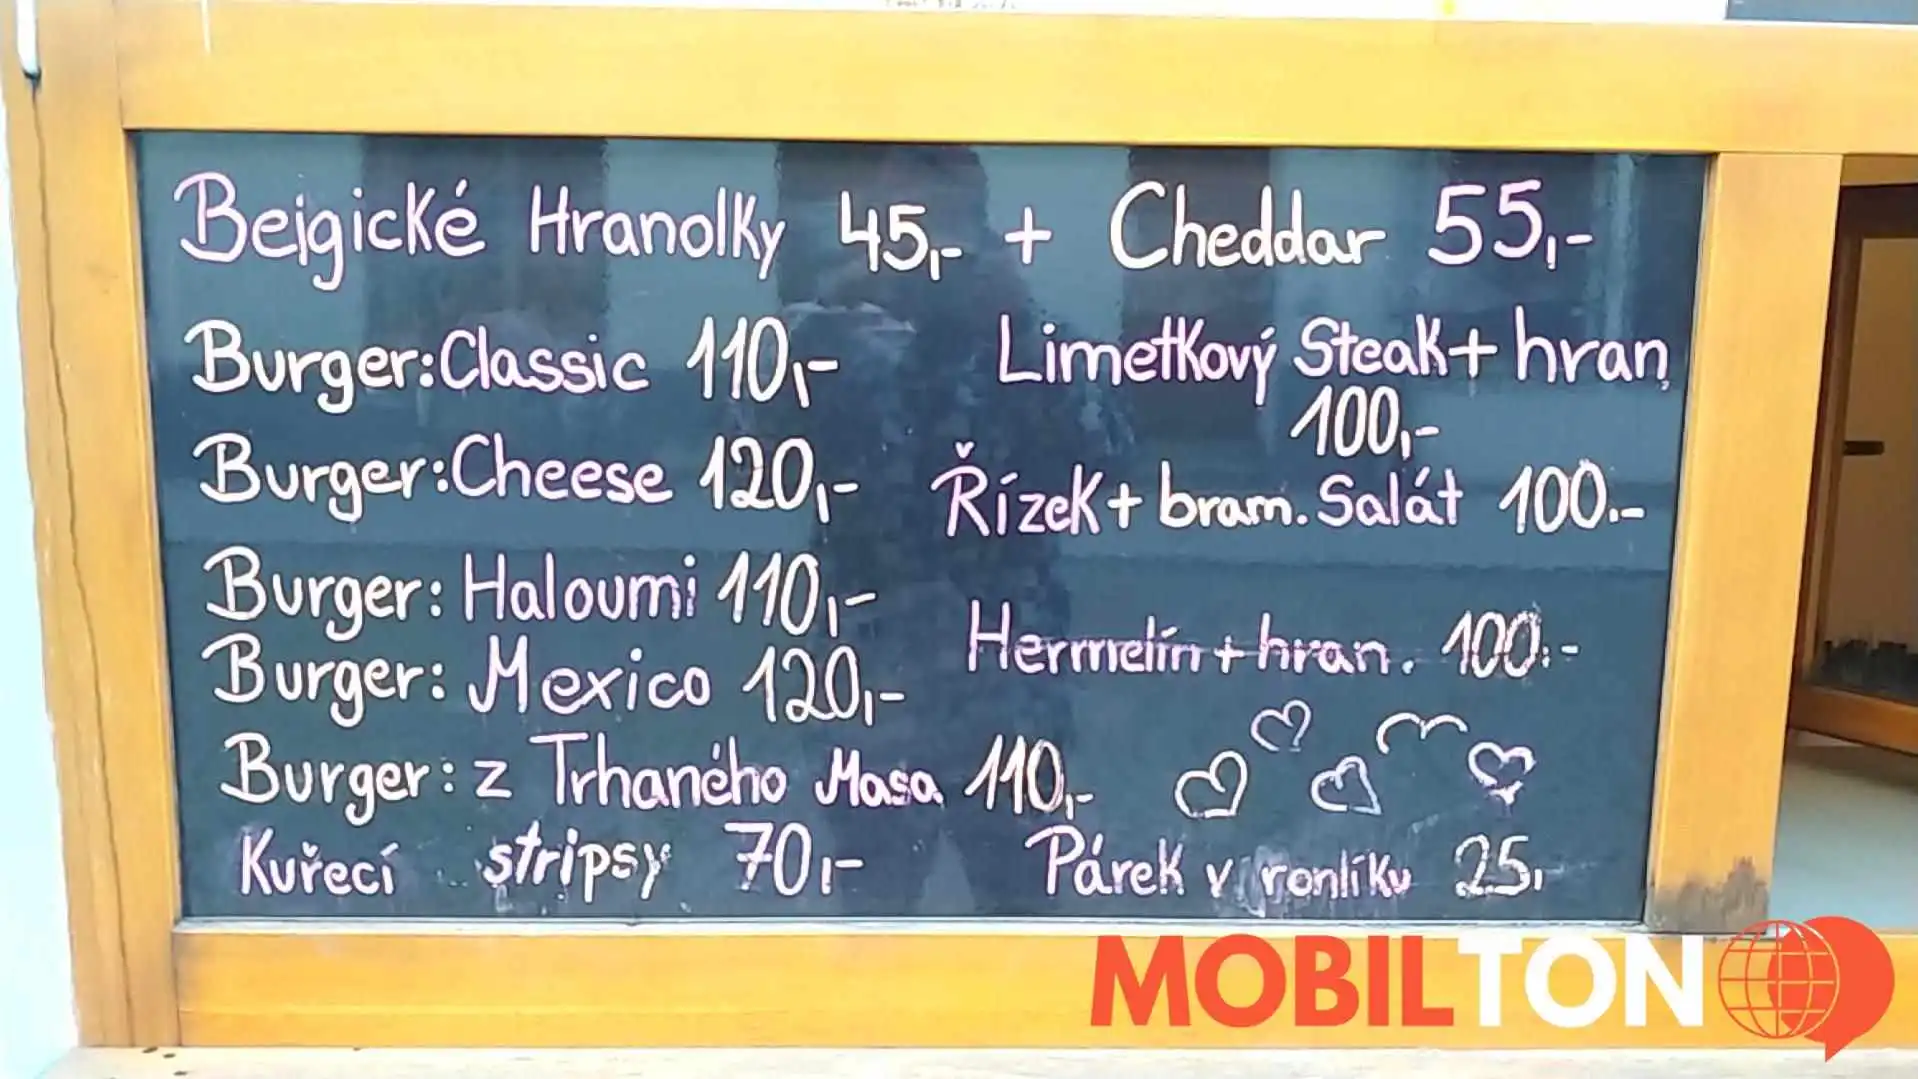 Beigické Hranolky 45,- + Cheddar 55,-
Burger: Classic 110,-
Burger: Cheese 120,-
Burger: Haloumi 110,-
Burger: Mexico 120,-
Burger: z Trhaného Masa 110,-
Kuřecí stripsy 70,-
Limetkový Steak + hran,
100,-
Řízek + bram. Salát 100.-
Hermelín + hran. 100.-
Párek v ronlíku 25,
MOBILTON